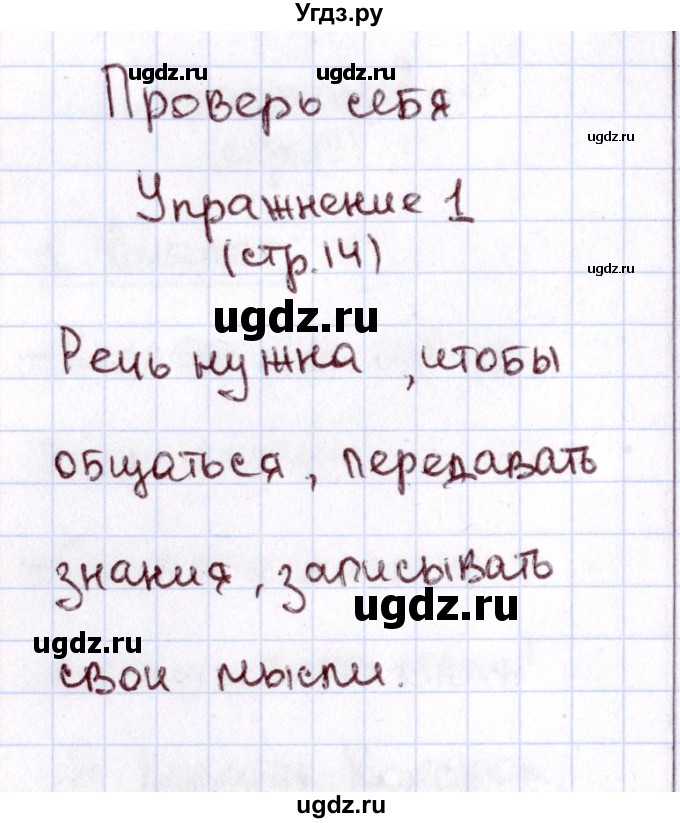 Угдз.ру
ugdz.ru ugdz.ru
Проверь себя
ugdz.ru
Упражнение 1
(стр.14)
ugdz.ru
ugdz.ru
Речь нужна, чтобы
общаться, передавать
знания, записывать
ugdz.ru
ugdz.ru
свои мысли.
ugdz.ru